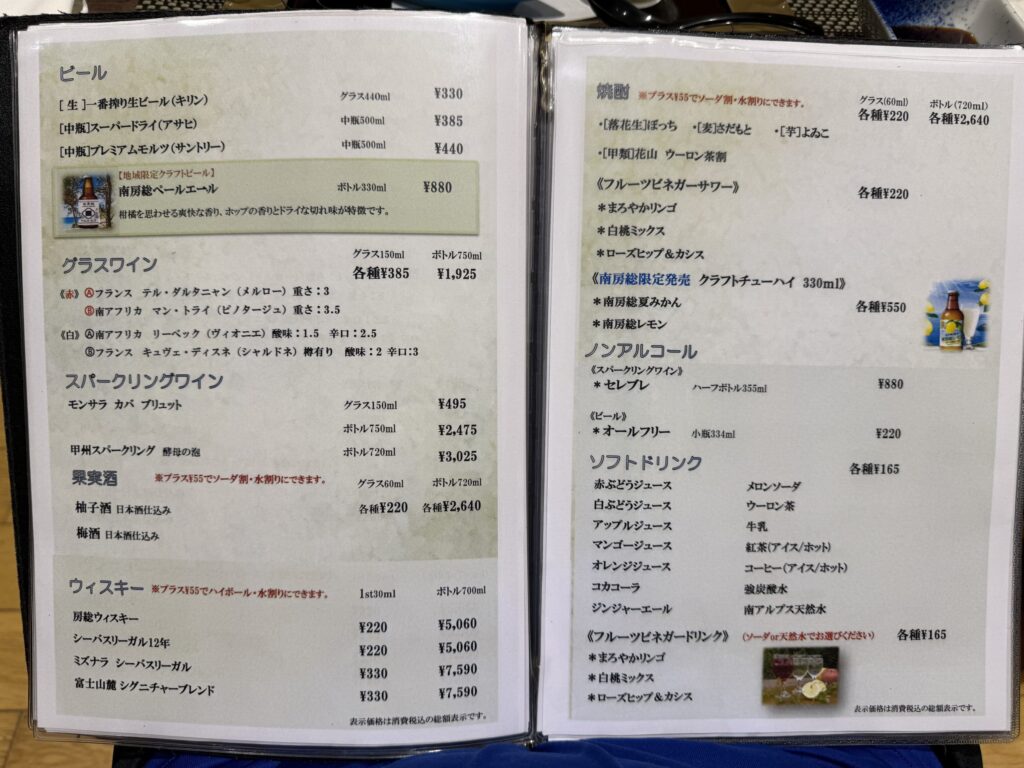 ビール
[ 生 ]一番搾り生ビール(キリン) グラス440ml ¥330
[中瓶]スーパードライ(アサヒ) 中瓶500ml ¥385
[中瓶]プレミアムモルツ(サントリー) 中瓶500ml ¥440
【地域限定クラフトビール】
南房総ペールエール ボトル330ml ¥880
柑橘を思わせる爽快な香り、ホップの香りとドライな切れ味が特徴です。
グラスワイン グラス150ml ボトル750ml
各種¥385 ¥1,925
《赤》Ⓐフランス テル・ダルタニャン(メルロー)重さ:3
Ⓑ南アフリカ マン・トライ(ピノタージュ)重さ:3.5
《白》Ⓐ南アフリカ リーベック(ヴィオニエ)酸味:1.5 辛口:2.5
Ⓑフランス キュヴェ・ディスネ(シャルドネ)樽有り 酸味:2 辛口:3
スパークリングワイン
モンサラ カバ ブリュット グラス150ml ¥495
ボトル750ml ¥2,475
甲州スパークリング 酵母の泡 ボトル720ml ¥3,025
果実酒 ※プラス¥55でソーダ割・水割りにできます。 グラス60ml ボトル720ml
柚子酒 日本酒仕込み 各種¥220 各種¥2,640
梅酒 日本酒仕込み
ウィスキー ※プラス¥55でハイボール・水割りにできます。 1st30ml ボトル700ml
房総ウィスキー ¥220 ¥5,060
シーバスリーガル12年 ¥220 ¥5,060
ミズナラ シーバスリーガル ¥330 ¥7,590
富士山麓 シグニチャーブレンド ¥330 ¥7,590
表示価格は消費税込の総額表示です。
焼酎 ※プラス¥55でソーダ割・水割りにできます。 グラス(60ml) ボトル(720ml)
各種¥220 各種¥2,640
・[落花生]ぼっち ・[麦]さだもと ・[芋]よゐこ
・[甲類]花山 ウーロン茶割
《フルーツビネガーサワー》 各種¥220
＊まろやかリンゴ
＊白桃ミックス
＊ローズヒップ&カシス
《南房総限定発売 クラフトチューハイ 330ml》
＊南房総夏みかん 各種¥550
＊南房総レモン
ノンアルコール
《スパークリングワイン》
＊セレブレ ハーフボトル355ml ¥880
《ビール》
＊オールフリー 小瓶334ml ¥220
ソフトドリンク 各種¥165
赤ぶどうジュース メロンソーダ
白ぶどうジュース ウーロン茶
アップルジュース 牛乳
マンゴージュース 紅茶(アイス/ホット)
オレンジジュース コーヒー(アイス/ホット)
コカコーラ 強炭酸水
ジンジャーエール 南アルプス天然水
《フルーツビネガードリンク》 (ソーダor天然水でお選びください) 各種¥165
＊まろやかリンゴ
＊白桃ミックス
＊ローズヒップ&カシス
表示価格は消費税込の総額表示です。